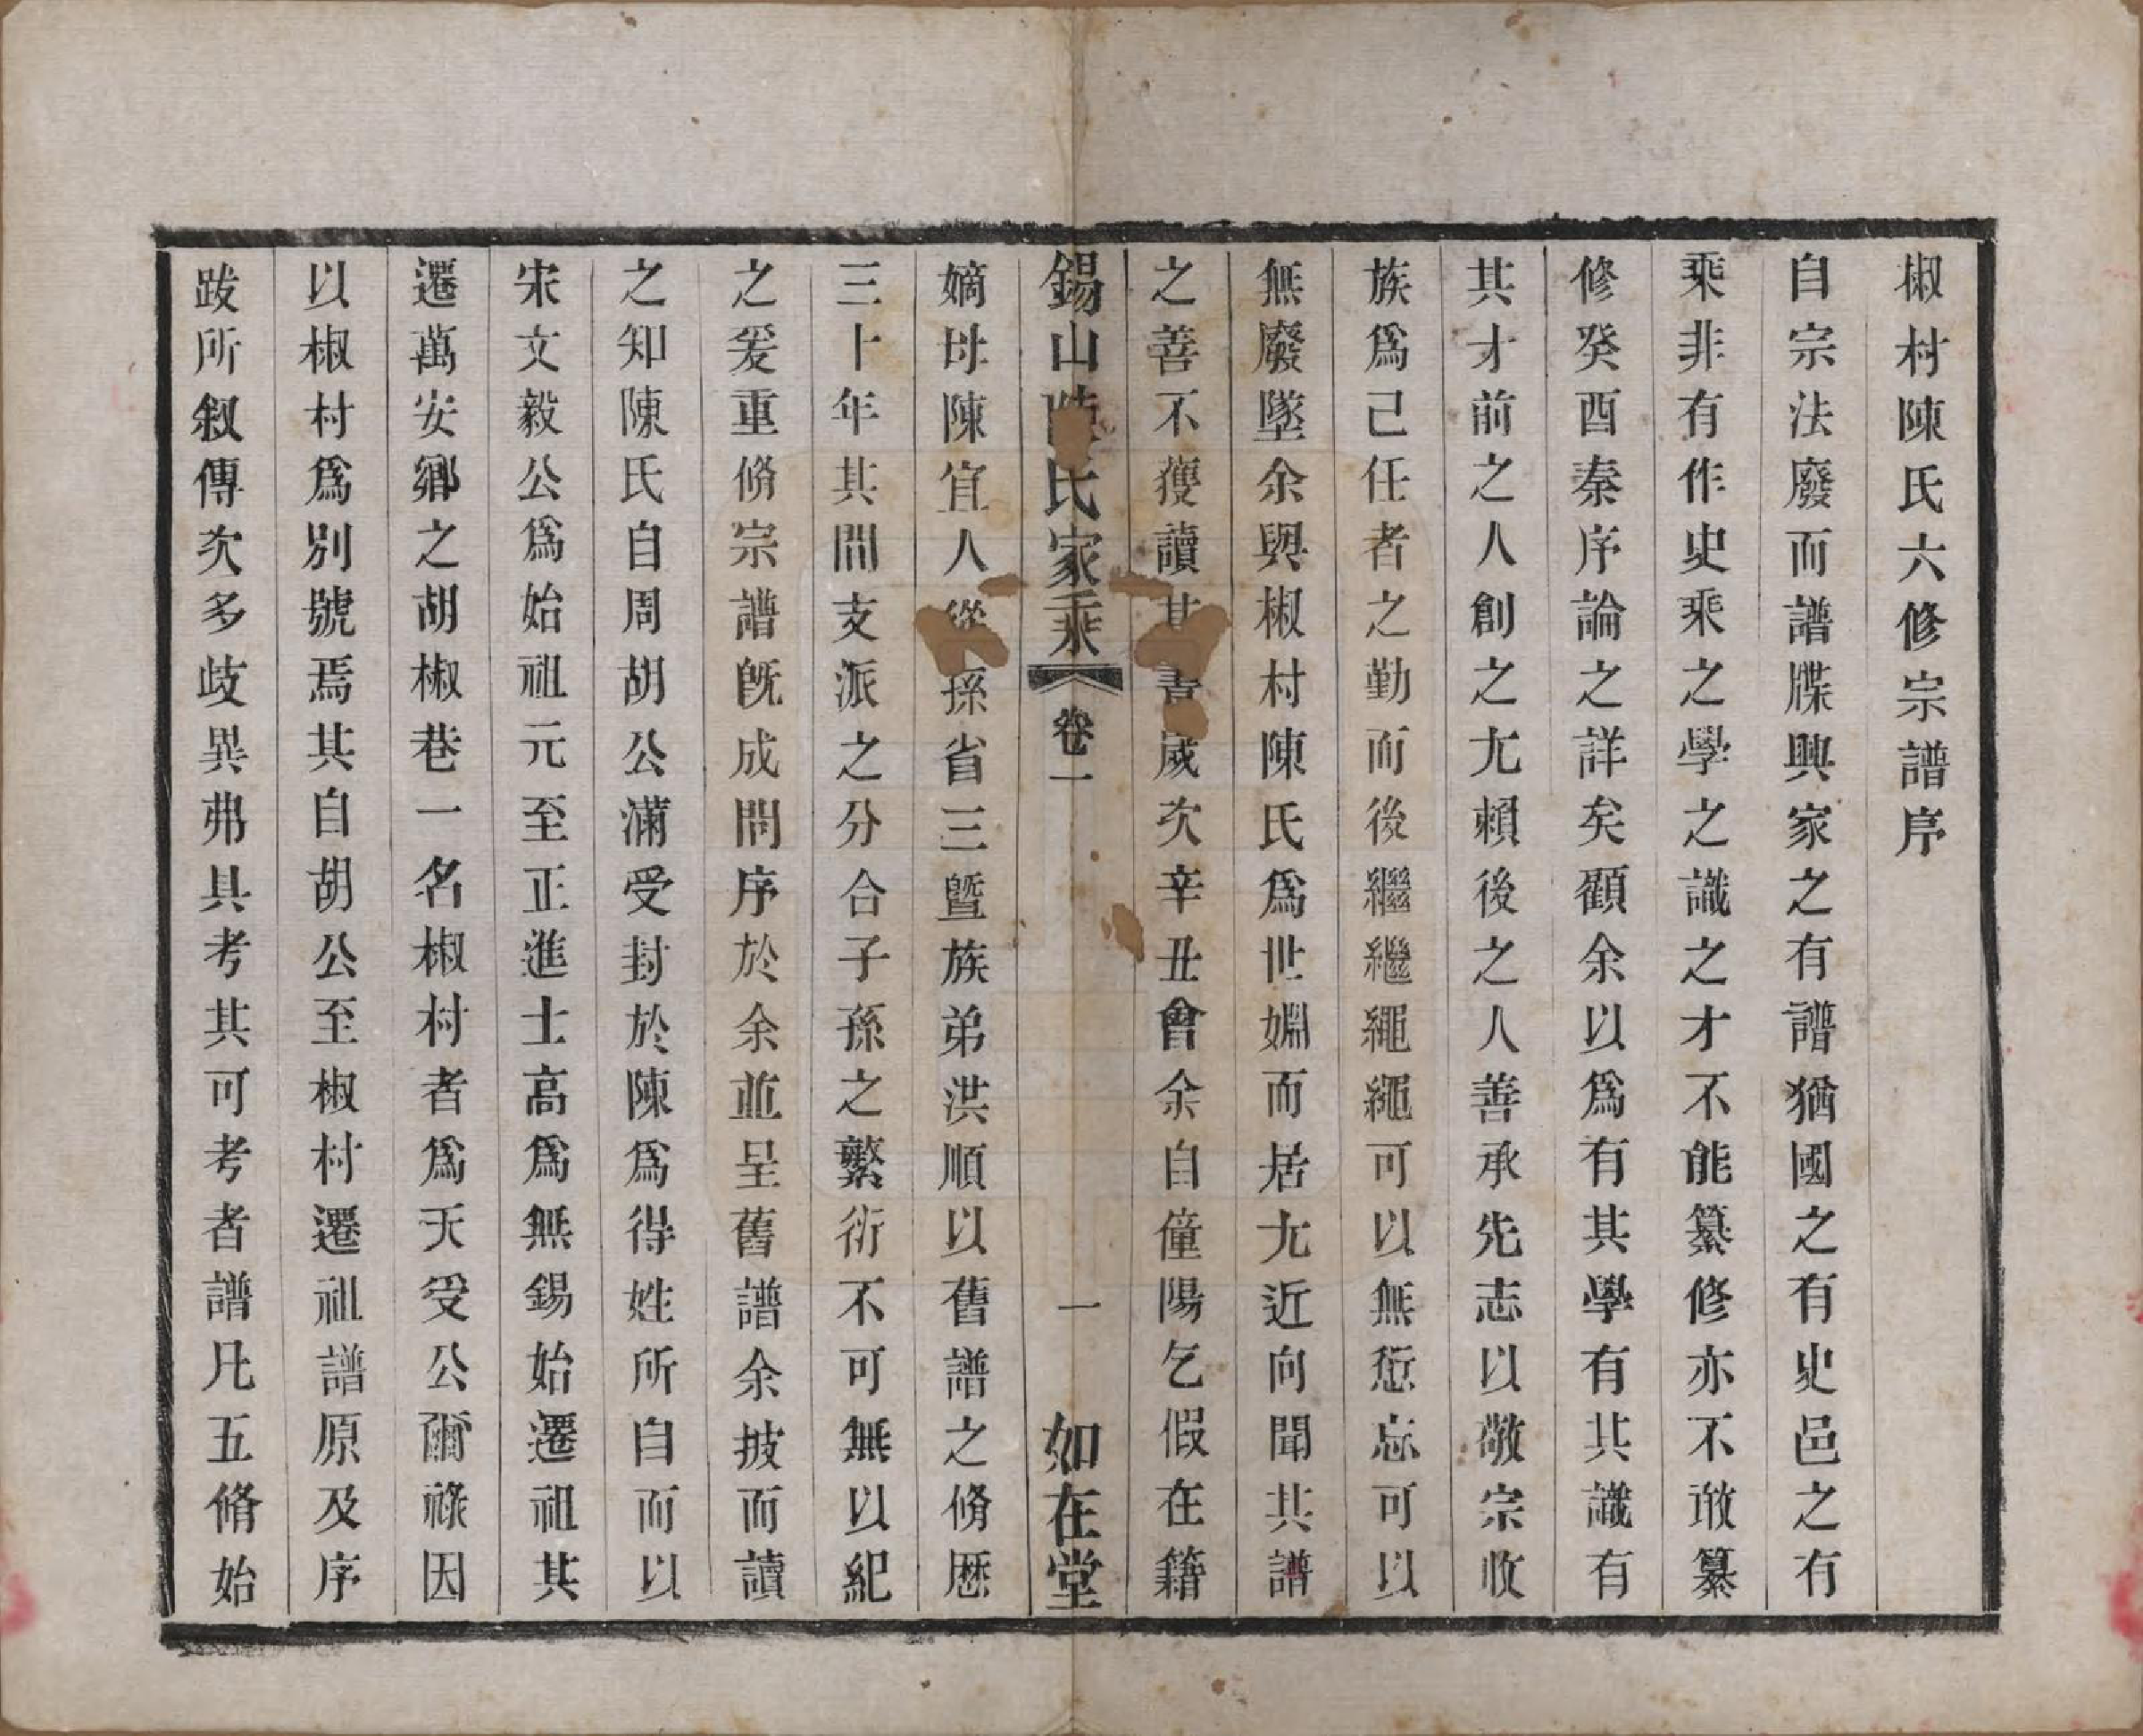 椒村陳氏六修宗譜序
自宗法廢而譜牒興家之有譜猶國之有史邑之有
乘非有作史乘之學之識之才不能纂修亦不敢纂
修癸酉秦序論之詳矣顧余以爲有其學有其識有
其才前之人創之尤賴後之人善承先志以敬宗收
族爲己任者之勤而後繼繼繩繩可以無愆忘可以
無廢墜余與椒村陳氏爲世姻而居尤近向聞其譜
之善不獲讀其書歲次辛丑會余自僮陽乞假在籍
錫山陳氏家乘 卷一 一 如在堂
嫡母陳宜人從孫省三曁族弟洪順以舊譜之脩歷
三十年其間支派之分合子孫之繁衍不可無以紀
之爰重脩宗譜旣成問序於余並呈舊譜余披而讀
之知陳氏自周胡公滿受封於陳爲得姓所自而以
宋文毅公爲始祖元至正進士高爲無錫始遷祖其
遷萬安鄉之胡椒巷一名椒村者爲天受公爾祿因
以椒村爲別號焉其自胡公至椒村遷祖譜原及序
跋所叙傳次多歧異弗具考其可考者譜凡五脩始